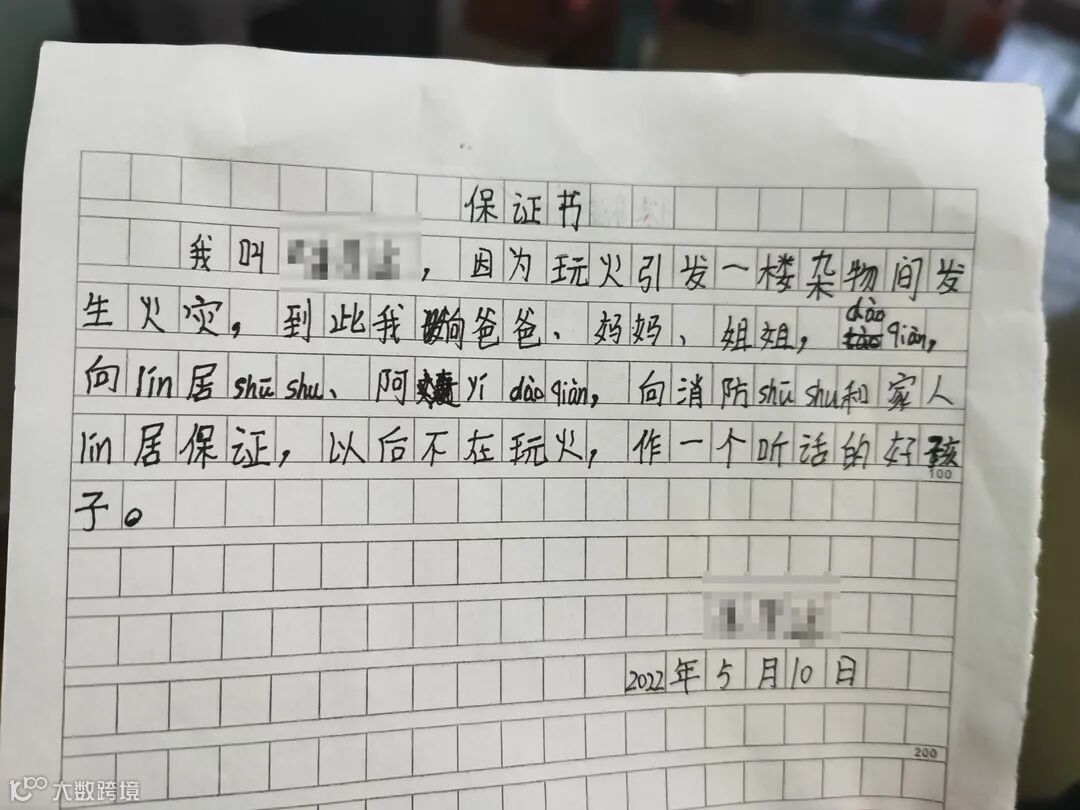 保证书
我叫，因为玩火引发一楼杂物间发
生火灾，到此我向爸爸、妈妈、姐姐，dào qiàn，
向lín居shū shu、阿yí dào qiàn，向消防shū shu和家人
lín居保证，以后不在玩火，作一个听话的好孩
100
子。
2022年5月10日
200
大数跨境